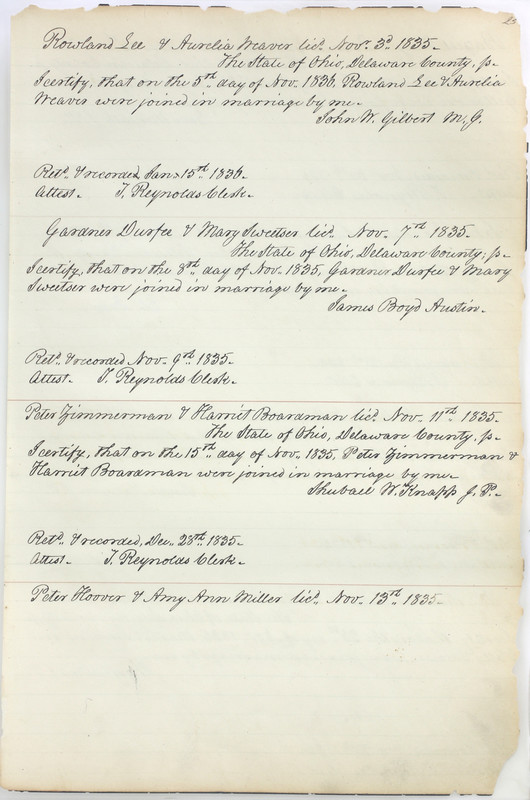 Rowland Lee & Aurelia Weaver licd. Novr. 3d. 1835-
The State of Ohio, Delaware County, ss-
I certify, that on the 5th day of Nov. 1836. Rowland Lee & Aurelia
Weaver were joined in marriage by me-
John W. Gilbert M. G.
Retd. & recorded Jan. 15th 1836.
Attest- T. Reynolds Clerk-
Gardner Durfee & Mary Sweetser licd. Nov. 7th 1835-
The State of Ohio, Delaware County; ss-
I certify, that on the 8th day of Nov. 1835, Gardner Durfee & Mary
Sweetser were joined in marriage by me-
James Boyd Austin-
Retd. & recorded Nov. 9th 1835-
Attest- T. Reynolds Clerk-
Peter Zimmerman & Harriet Boardman licd. Nov. 11th 1835-
The State of Ohio, Delaware County, ss-
I certify, that on the 15th day of Nov. 1835, Peter Zimmerman &
Harriet Boardman were joined in marriage by me-
Shubael W. Knapp J. P.-
Retd. & recorded, Dec. 28th 1835-
Attest- T. Reynolds Clerk-
Peter Hoover & Amy Ann Miller licd. Nov. 13th 1835-